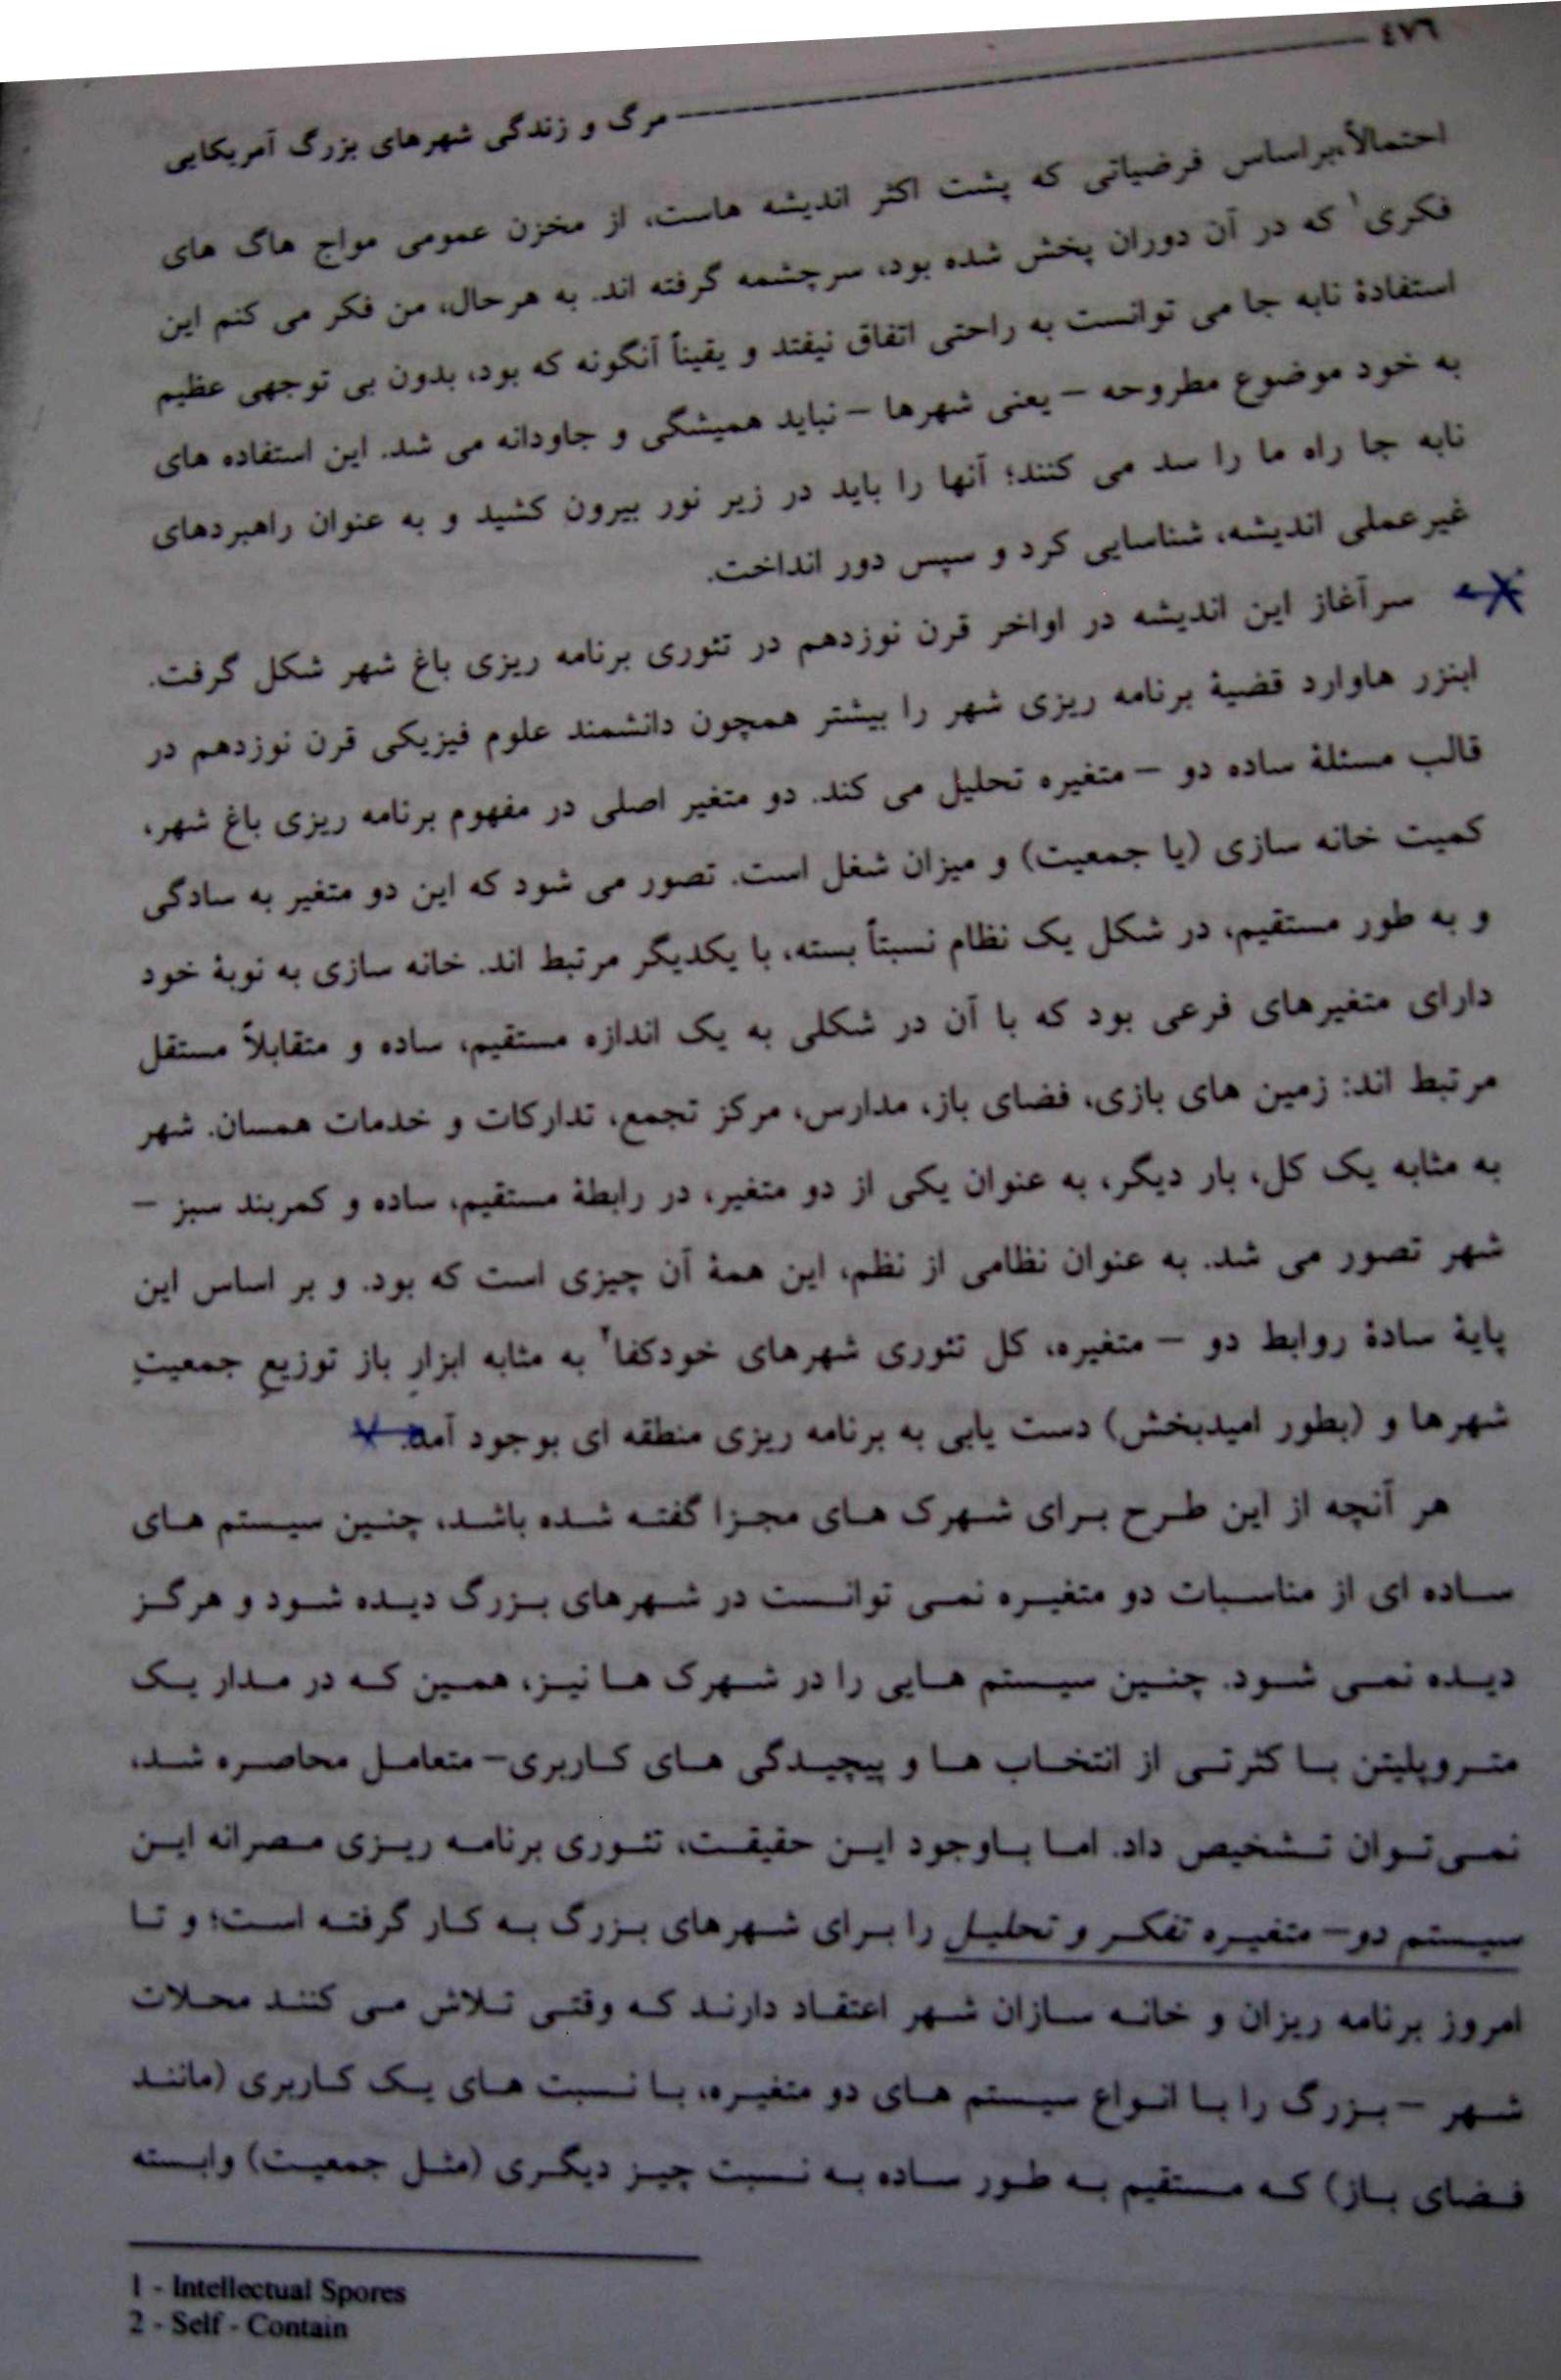 ٤٧٦
مرگ و زندگی شهرهای بزرگ آمریکایی
احتمالاً،براساس فرضیاتی که پشت اکثر اندیشه هاست، از مخزن عمومی مواج هاگ های
فکری۱ که در آن دوران پخش شده بود، سرچشمه گرفته اند. به هرحال، من فکر می کنم این
استفادهٔ نابه جا می توانست به راحتی اتفاق نیفتد و یقیناً آنگونه که بود، بدون بی توجهی عظیم
به خود موضوع مطروحه – یعنی شهرها – نباید همیشگی و جاودانه می شد. این استفاده های
نابه جا راه ما را سد می کنند؛ آنها را باید در زیر نور بیرون کشید و به عنوان راهبردهای
غیرعملی اندیشه، شناسایی کرد و سپس دور انداخت.
سرآغاز این اندیشه در اواخر قرن نوزدهم در تئوری برنامه ریزی باغ شهر شکل گرفت.
ابنزر هاوارد قضیهٔ برنامه ریزی شهر را بیشتر همچون دانشمند علوم فیزیکی قرن نوزدهم در
قالب مسئلهٔ ساده دو – متغیره تحلیل می کند. دو متغیر اصلی در مفهوم برنامه ریزی باغ شهر،
کمیت خانه سازی (یا جمعیت) و میزان شغل است. تصور می شود که این دو متغیر به سادگی
و به طور مستقیم، در شکل یک نظام نسبتاً بسته، با یکدیگر مرتبط اند. خانه سازی به نوبهٔ خود
دارای متغیرهای فرعی بود که با آن در شکلی به یک اندازه مستقیم، ساده و متقابلاً مستقل
مرتبط اند: زمین های بازی، فضای باز، مدارس، مرکز تجمع، تدارکات و خدمات همسان. شهر
به مثابه یک کل، بار دیگر، به عنوان یکی از دو متغیر، در رابطهٔ مستقیم، ساده و کمربند سبز –
شهر تصور می شد. به عنوان نظامی از نظم، این همهٔ آن چیزی است که بود. و بر اساس این
پایهٔ سادهٔ روابط دو – متغیره، کل تئوری شهرهای خودکفا۲ به مثابه ابزارِ باز توزیعِ جمعیتِ
شهرها و (بطور امیدبخش) دست یابی به برنامه ریزی منطقه ای بوجود آمد.
هر آنچه از این طرح برای شهرک های مجزا گفته شده باشد، چنین سیستم های
ساده ای از مناسبات دو متغیره نمی توانست در شهرهای بزرگ دیده شود و هرگز
دیده نمی شود. چنین سیستم هایی را در شهرک ها نیز، همین که در مدار یک
متروپلیتن با کثرتی از انتخاب ها و پیچیدگی های کاربری– متعامل محاصره شد،
نمی‌توان تشخیص داد. اما باوجود این حقیقت، تئوری برنامه ریزی مصرانه این
سیستم دو– متغیره تفکر و تحلیل را برای شهرهای بزرگ به کار گرفته است؛ و تا
امروز برنامه ریزان و خانه سازان شهر اعتقاد دارند که وقتی تلاش می کنند محلات
شهر – بزرگ را با انواع سیستم های دو متغیره، با نسبت های یک کاربری (مانند
فضای باز) که مستقیم به طور ساده به نسبت چیز دیگری (مثل جمعیت) وابسته
1 - Intellectual Spores
2 - Self - Contain